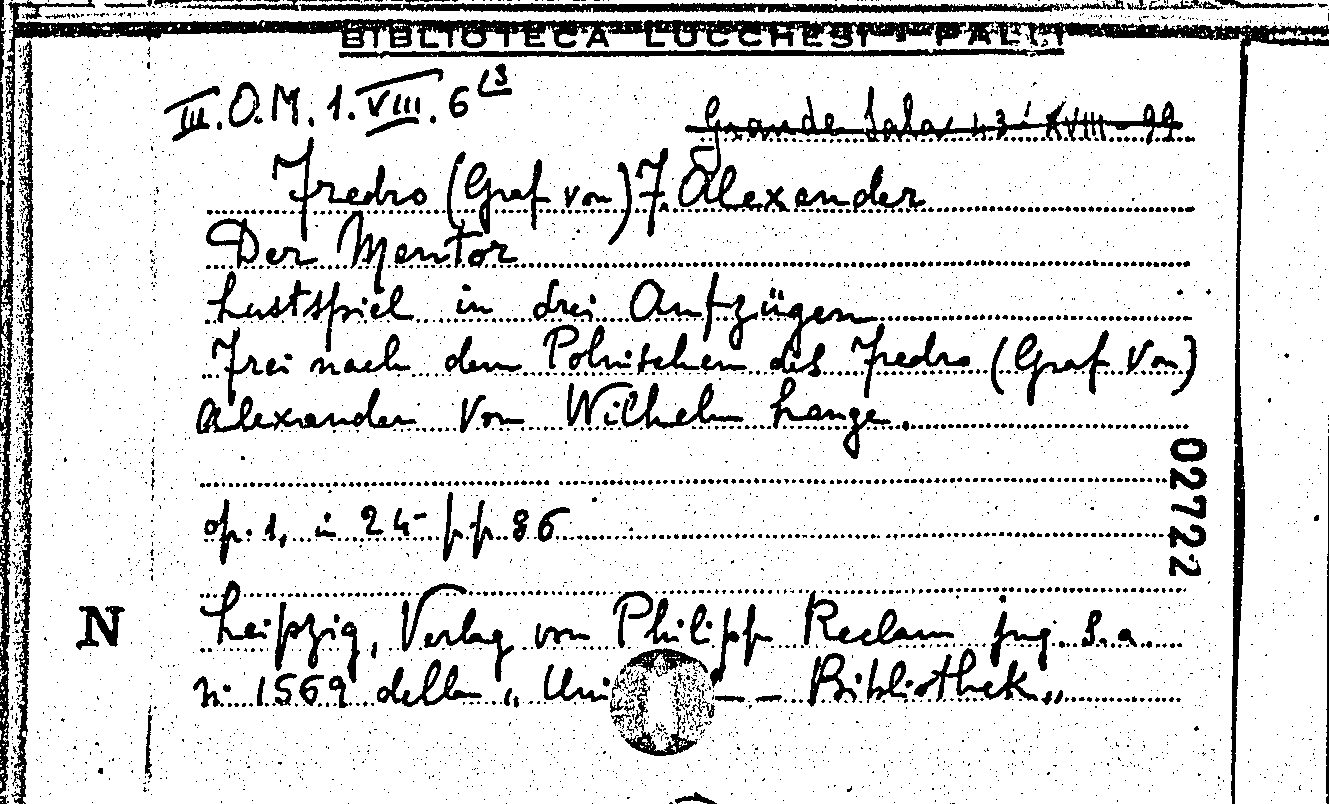 BIBLIOTECA LUCCHESI - PALLI
III. O.M. 1. VIII. 6 (3
Grande Sala 43 XVIII - 99
Fredro (Graf von) J. Alexander
Der Mentor
Lustspiel in drei Aufzügen
Frei nach dem Polnischen des Fredro (Graf von)
Alexander von Wilhelm Lange.
op. 1, in 24° pp 86
Leipzig, Verlag von Philipp Reclam jug. S.a.
N
n. 1569 della " Uni — — Bibliothek "
027722